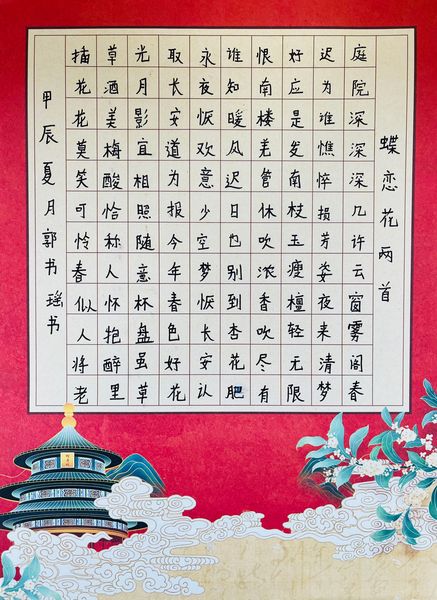 蝶恋花两首
庭院深深深几许云窗雾阁春
迟为谁憔悴损芳姿夜来清梦
好应是发南枝玉瘦檀轻无限
恨南楼羌管休吹浓香吹尽有
谁知暖风迟日也别到杏花肥
永夜恹欢意少空梦恹长安认
取长安道为报今年春色好花
光月影宜相照随意杯盘虽草
草酒美梅酸恰称人怀抱醉里
插花花莫笑可怜春似人将老
甲辰夏月郭书瑶书